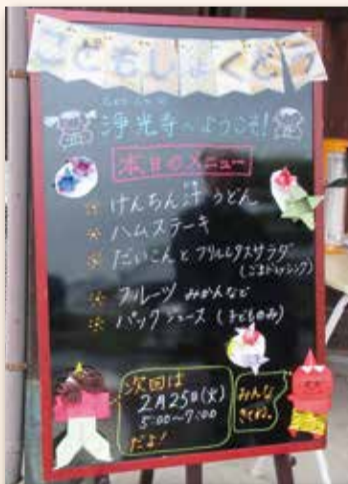 こどもしょくどう
浄光寺へようこそ!
本日のメニュー
けんちん汁うどん
ハムステーキ
だいこんとフリルレタスサラダ
(ごまドレッシング)
フルーツ みかんなど
パックジュース (子どものみ)
次回は
2月25日(火)
5:00~7:00
だよ!
みんな
きてね。